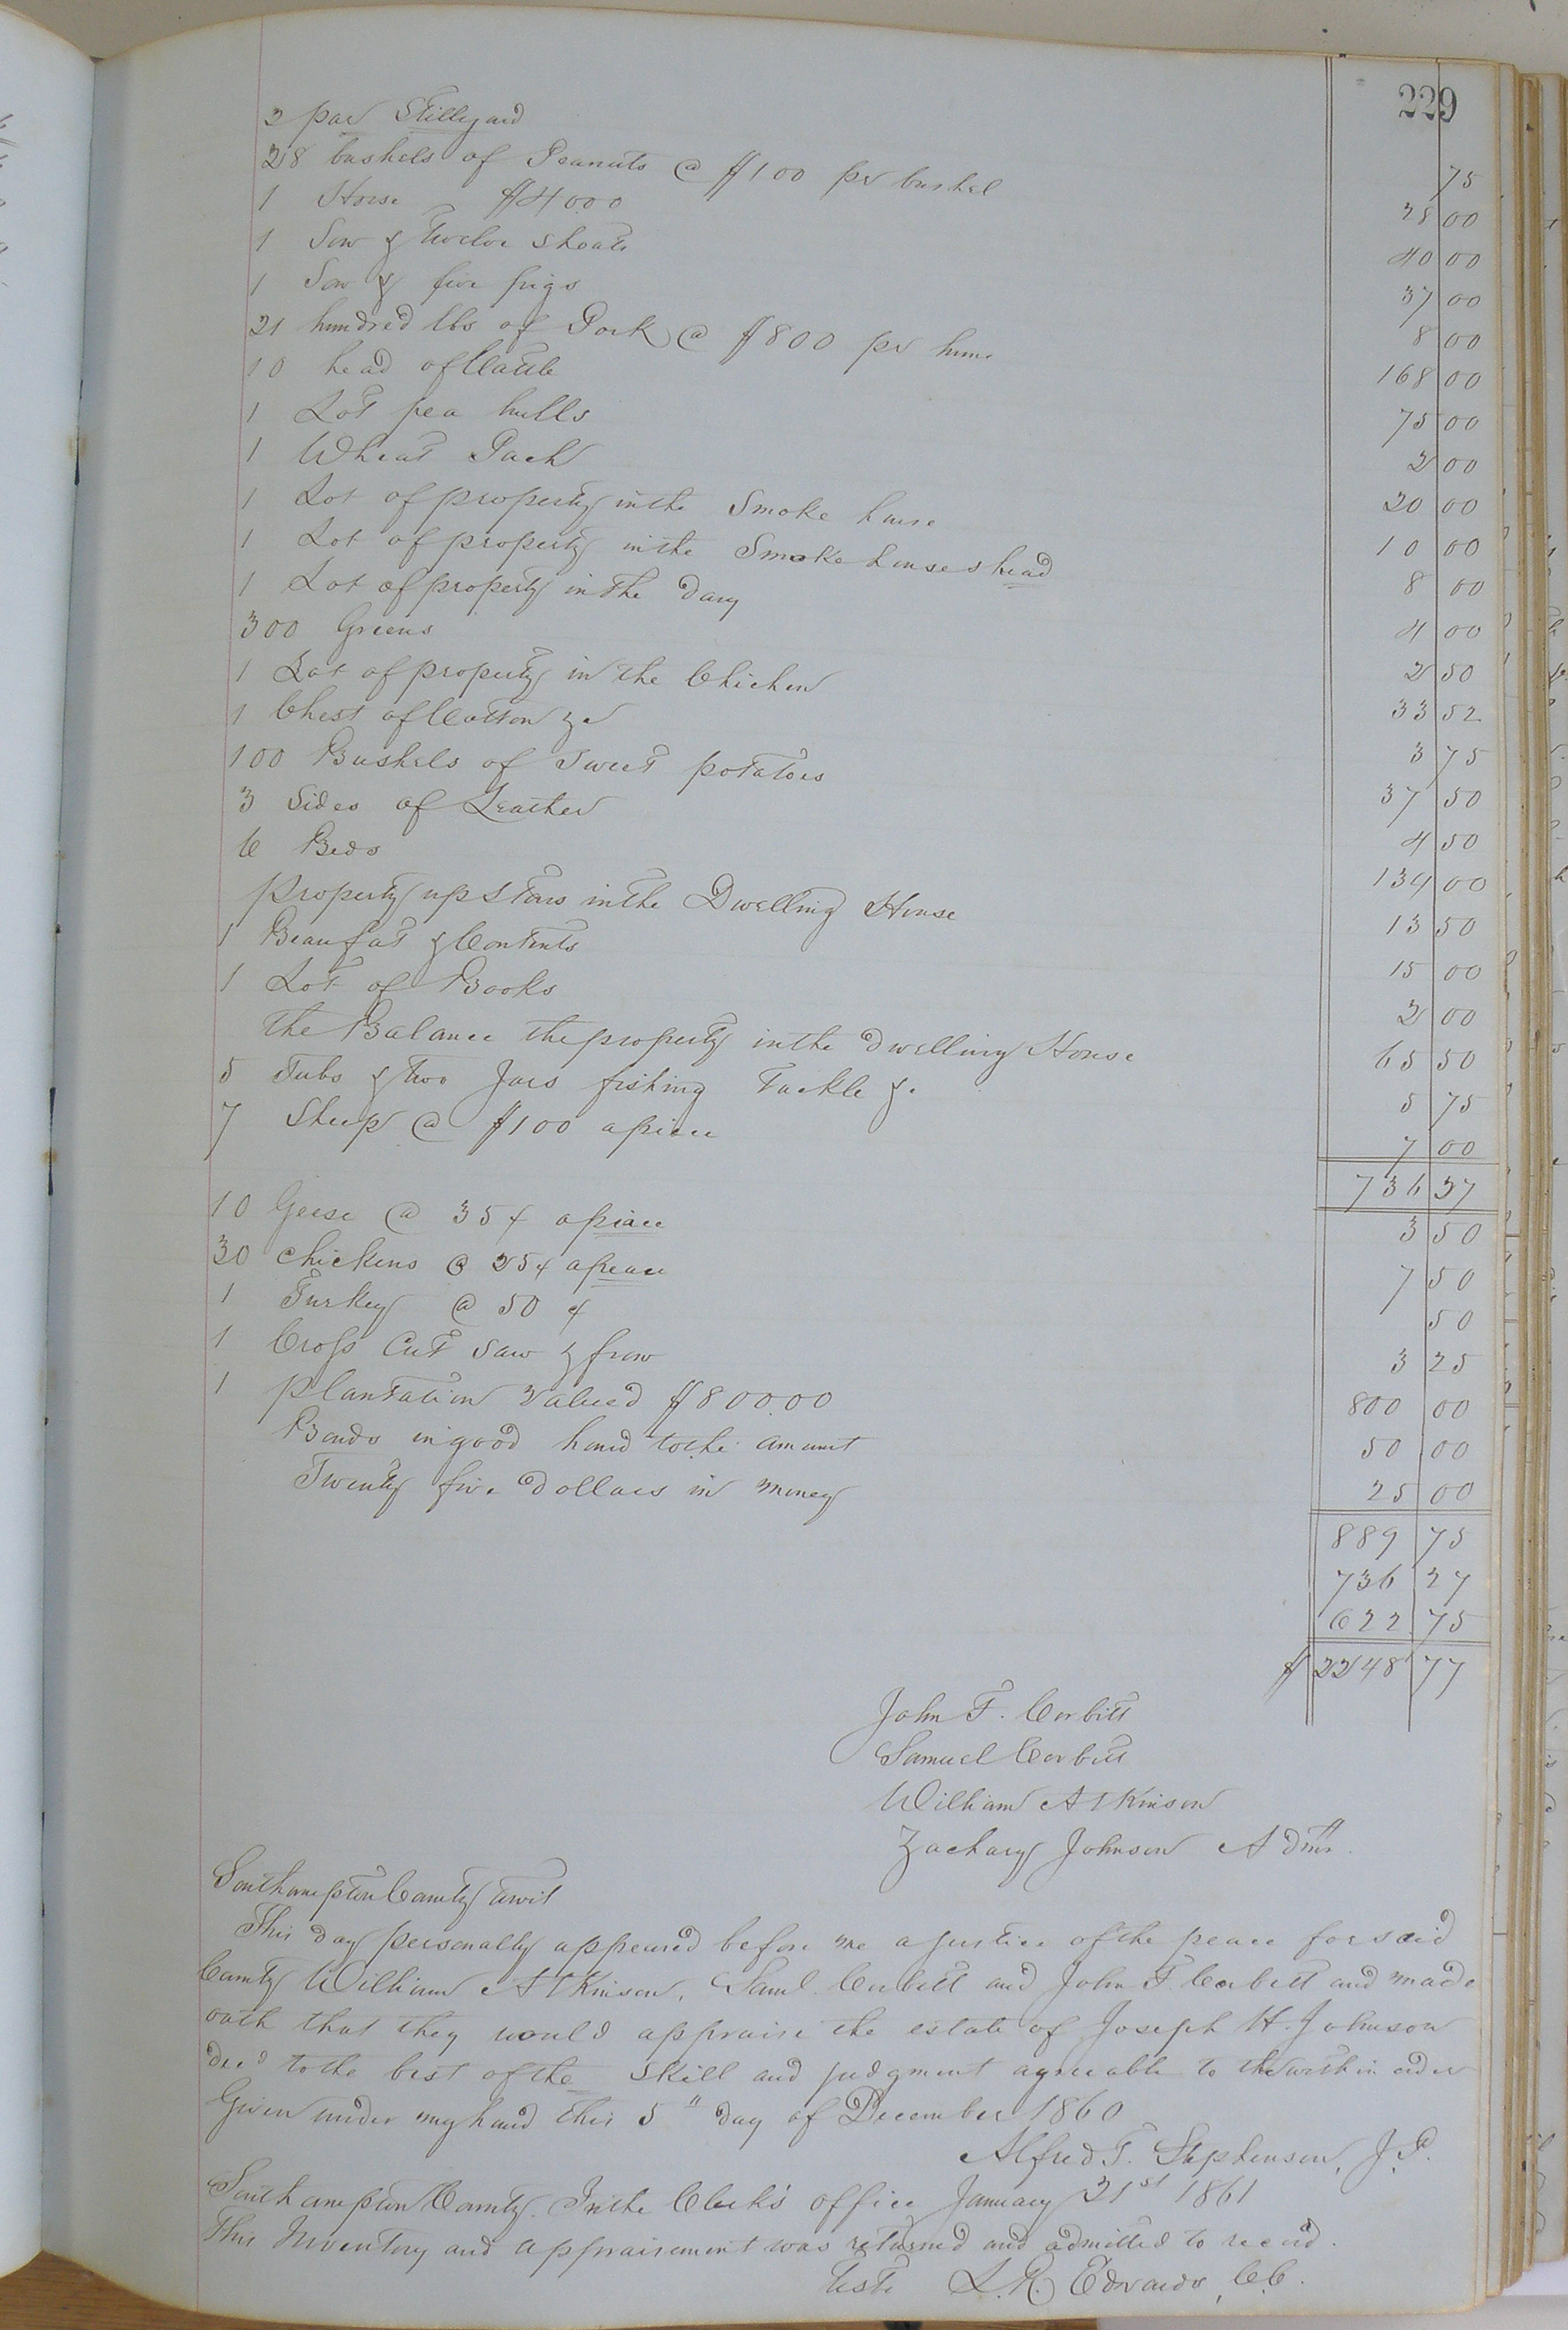 229
2 par Stillyard 75
28 bushels of Peanuts @ $1 00 pr bushel 28 00
1 Horse $40 00 40 00
1 Sow & twelve shoats 37 00
1 Sow & five pigs 8 00
21 hundred lbs of Pork @ $8 00 pr hun. 168 00
10 head of Cattle 75 00
1 Lot pea hulls 2 00
1 Wheat 20 00
1 Lot of property in the Smoke house 10 00
1 Lot of property in the Smoke house shead 8 00
1 Lot of property in the dary 4 00
300 Greens 2 50
1 Lot of property in the Chichen 33 52
1 Chest of Cotton &c 3 75
100 Bushels of Sweet potatoes 37 50
3 Sides of Leather 4 50
6 Beds 134 00
Property up Stars in the Dwelling House 13 50
1 Beaufat & Contents 15 00
1 Lot of Books 2 00
The Balance the property in the dwelling House 65 50
5 Tubs & two Jars fishing Tackle &c 5 75
7 Sheep @ $1 00 apiece 7 00
736 27
10 Geese @ 35 ¢ apiace 3 50
30 chickens @ 25 ¢ apeace 7 50
1 Turkey @ 50 ¢ 50
1 Cross Cut Saw & frow 3 25
1 plantation valued $800.00 800 00
Bonds in good hand to the amount 50 00
Twenty five dollars in money 25 00
889 75
736 27
622 75
$ 2248 77
John F. Corbitt
Samuel Corbitt
William Atkinson
Zachary Johnson Admr.
Southampton County towit
This day personally appeared before me a justice of the peace for said
County William Atkinson, Saml. Corbitt and John F. Corbitt and made
oath that they would appraise the estate of Joseph H. Johnson
decd to the best of the skill and judgment agreeable to the within order
Given under my hand this 5" day of December 1860
Alfred T. Stephenson, J.P.
Southampton County. In the Clerk's office January 21st 1861
This Inventory and appraisement was returned and admitted to record.
Teste L. R. Edwards, C.C.